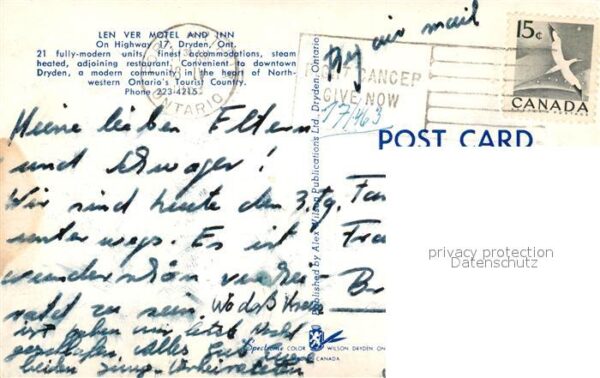 LEN VER MOTEL AND INN
On Highway 17, Dryden, Ont.
21 fully-modern units, finest accommodations, steam
heated, adjoining restaurant. Convenient to downtown
Dryden, a modern community in the heart of North-
western Ontario's Tourist Country.
Phone 223-4215
ONTARIO
By air mail
FIGHT CANCER
GIVE NOW
17/463
15¢
CANADA
POST CARD
Published by Alex Wilson Publications Ltd., Dryden, Ontario
Meine lieben Eltern
und Schwager!
Wir sind heute den 3. Tg.
unterwegs. Es ist
wunderschön
zu sein.
ist haben wir letzte Nacht
geschlafen, alles
beiden
privacy protection
Datenschutz
Spectrome COLOR WILSON DRYDEN ON
CANADA